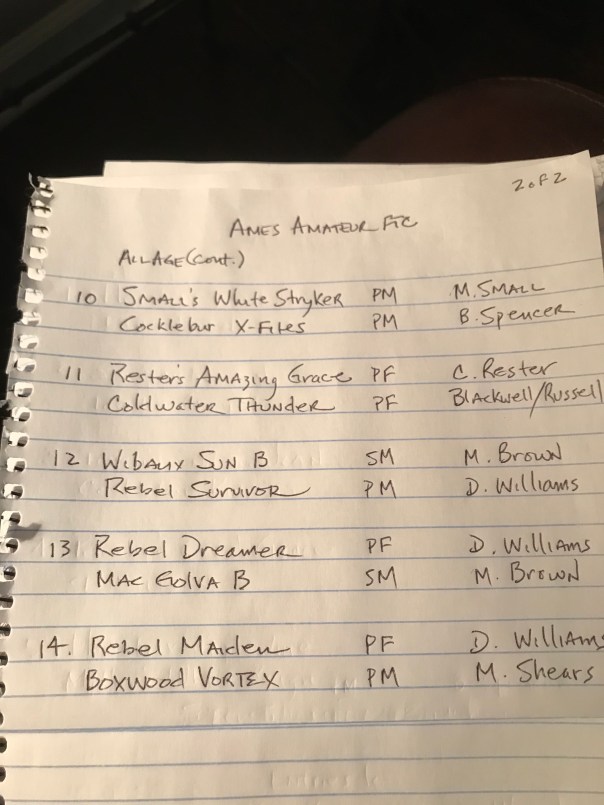 2 of 2
AMES AMATEUR FTC
ALL AGE (Cont.)
10 SMALL'S White Stryker PM M. SMALL
Cocklebur X-Files PM B. Spencer
11 Rester's AMAzing Grace PF C. Rester
Coldwater THUNDER PF BlAckwell/Russell
12 Wibaux SUN B SM M. BROWN
Rebel SURVIVOR PM D. WilliAMS
13 Rebel DREAMER PF D. WilliAMS
MAC GOLVA B SM M. BROWN
14. Rebel MAiden PF D. WilliAMS
BOXWOOD VORTEX PM M. Shears